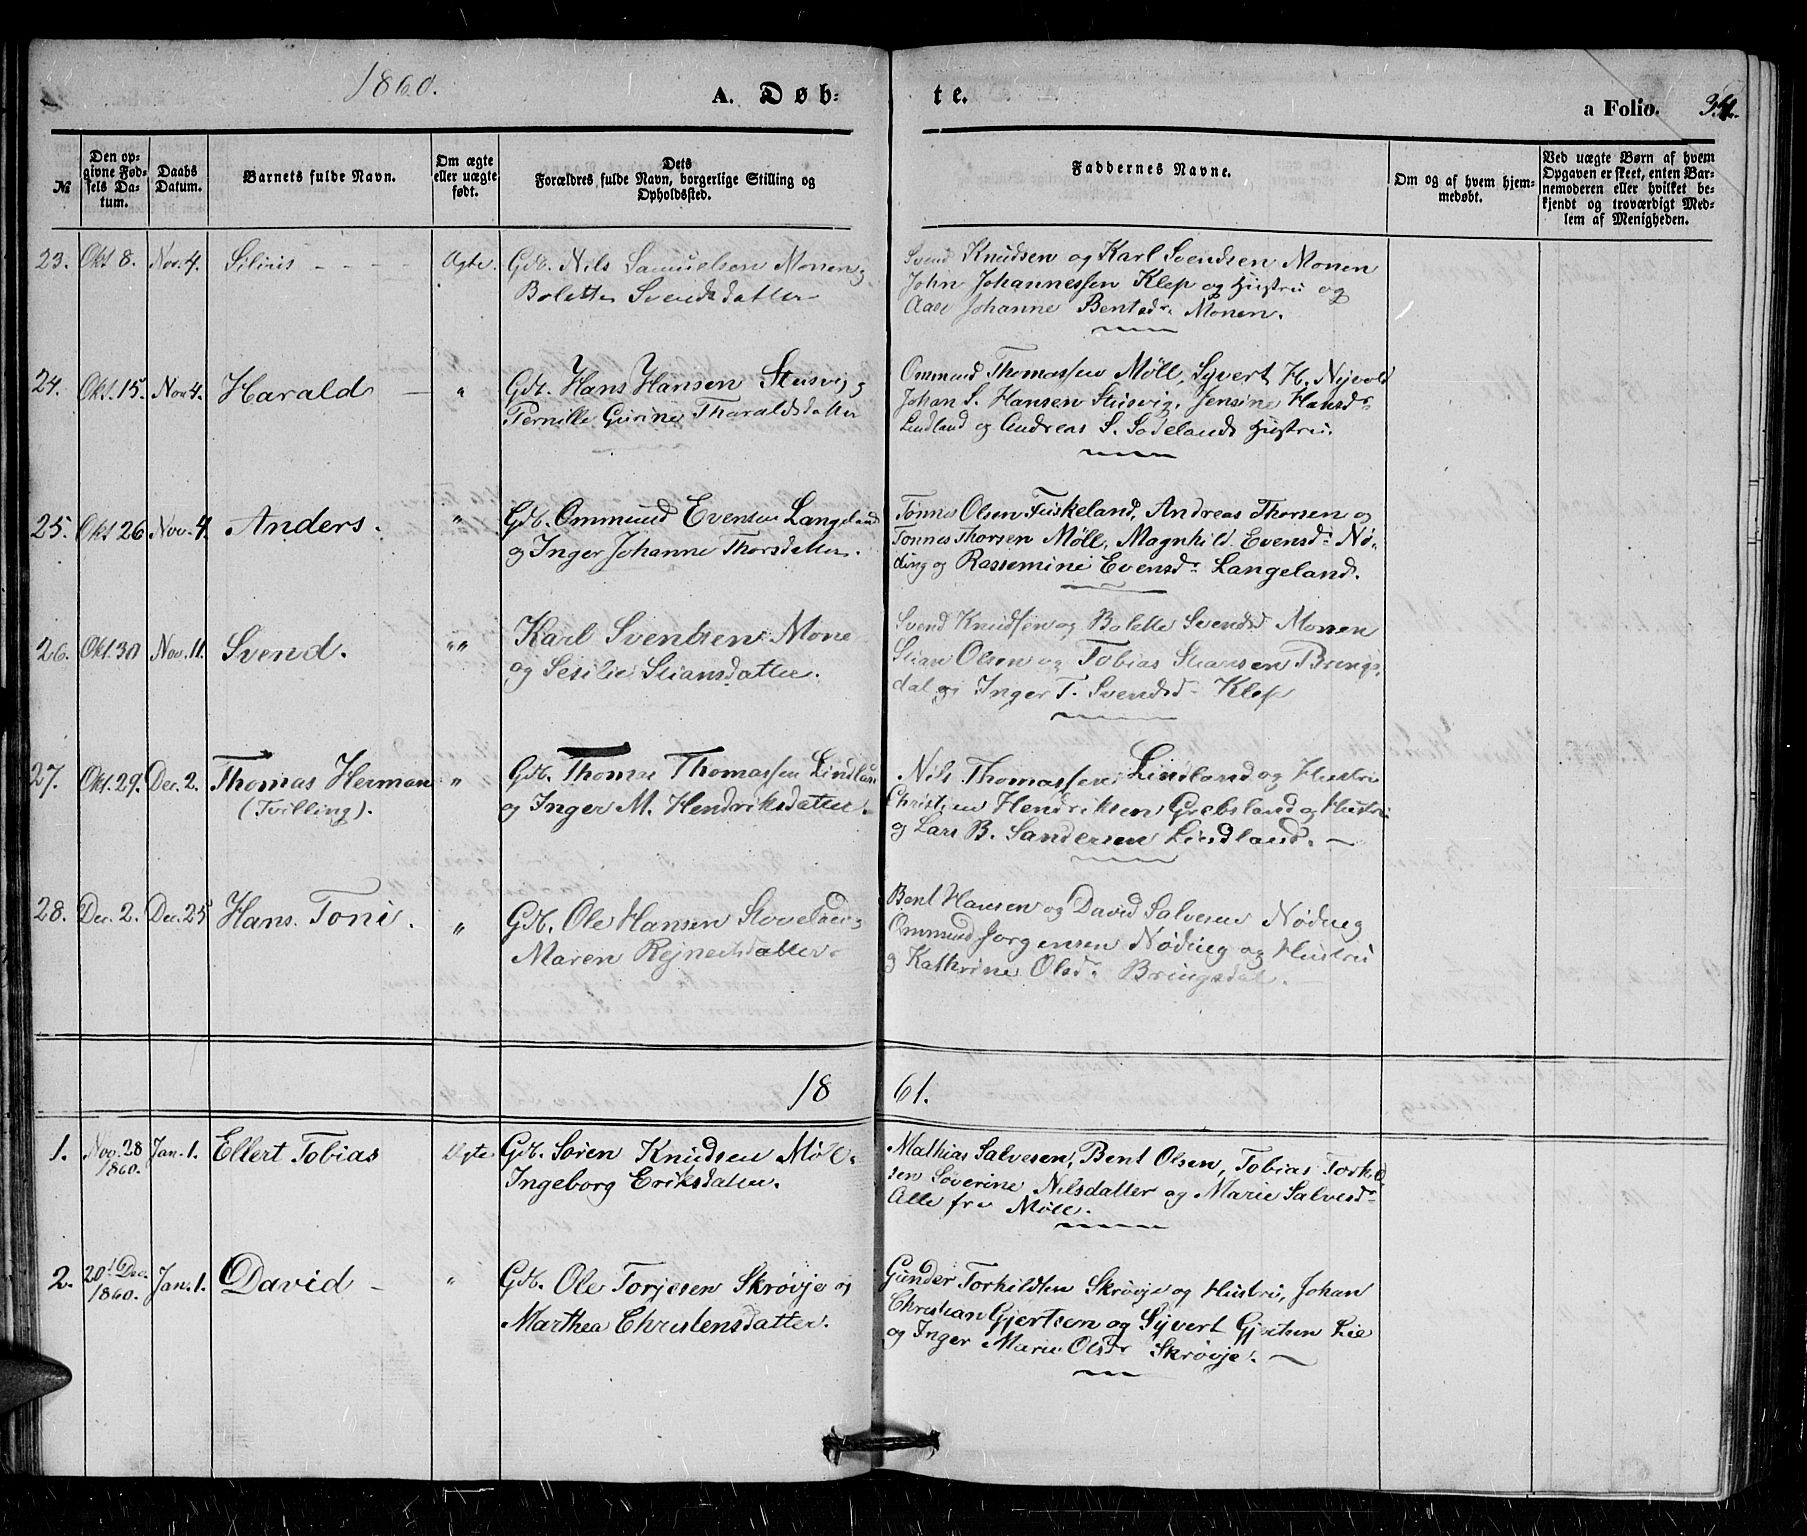 1860.
A. Døb-
te.
a Folio. 34.
№
Den op-
givne Fød-
sels Da-
tum.
Daabs
Datum.
Barnets fulde Navn.
Om ægte
eller uægte
født.
Dets
Forældres fulde Navn, borgerlige Stilling og
Opholdssted.
Faddernes Navne.
Om og af hvem hjem-
medøbt.
Ved uægte Børn af hvem
Opgaven er skeet, enten Bar-
nemoderen eller hvilket be-
kjendt og troværdigt Med-
lem af Menigheden.
23. Okt 8. Nov. 4. Silius - - - Ægte. Gdb. Nils Samuelsen Monen og
Bolette Svendsdatter
Svend Knudsen og Karl Svendsen Monen
John Johannessen Klep og Hustru og
Aase Johanne Bentsdr. Monen.
24. Okt. 15. Nov 4. Harald - " Gdb. Hans Hansen Stusvig og
Pernille Gurine Tharaldsdatter
Ommund Thomassen Møll, Syvert H. Nyvold
Johan S. Hansen Stusvig, Jensine Hansdr
Lindland og Andreas S. Sødelands Hustru.
25. Okt 26 Nov. 4. Anders. " Gdb. Ommund Evensen Langeland
og Inger Johanne Thorsdatter.
Tønnes Olsen Fuskeland, Andreas Thorsen og
Tønnes Thorsen Møll, Magnhild Evensdr Nø-
ding og Rassemine Evensdr Langeland.
26. Okt. 30 Nov. 11. Svend. " " Karl Svendsen Mone
og Sesilie Stiansdatter.
Svend Knudsen og Bolette Svendsd Monen
Stian Olsen og Tobias Stiansen Brings-
dal og Inger T. Svendsd Klep
27. Okt. 29. Dec. 2. Thomas Herman
(Tvilling).
" Gdb. Thomas Thomassen Lindland
og Inger M. Hendriksdatter
Nils Thomassen Lindland og Hustru
Christen Hendriksen Grebsland og Hustru
og Lars B. Sandersen Lindland. -
28. Dec. 2. Dec. 25 Hans Toni. " Gdb. Ole Hansen Stoveland og
Maren Rejnertsdatter.
Bent Hansen og David Salvesen Nøding
Ommund Jorgensen Nøding og Hustru
og Kathrine Olsdr Bringsdal. -
18 61.
1. Nov. 28
1860.
Jan. 1. Ellert Tobias Ægte Gdb. Søren Knudsen Møll.
Ingeborg Eriksdatter.
Mathias Salvesen, Bent Olsen, Tobias Torkild
sen Søverine Nilsdatter og Marie Salvesdr
Alle fra Møll.
2. 20 16 Dec.
1860.
Jan. 1. David - " Gdb. Ole Torjesen Skrøvje og
Marthea Christensdatter.
Gunder Torkildsen Skrøvje og Hustru, Johan
Christian Gjertsen og Syvert Gjertsen Lie
og Inger Marie Olsdr Skrøvje. -